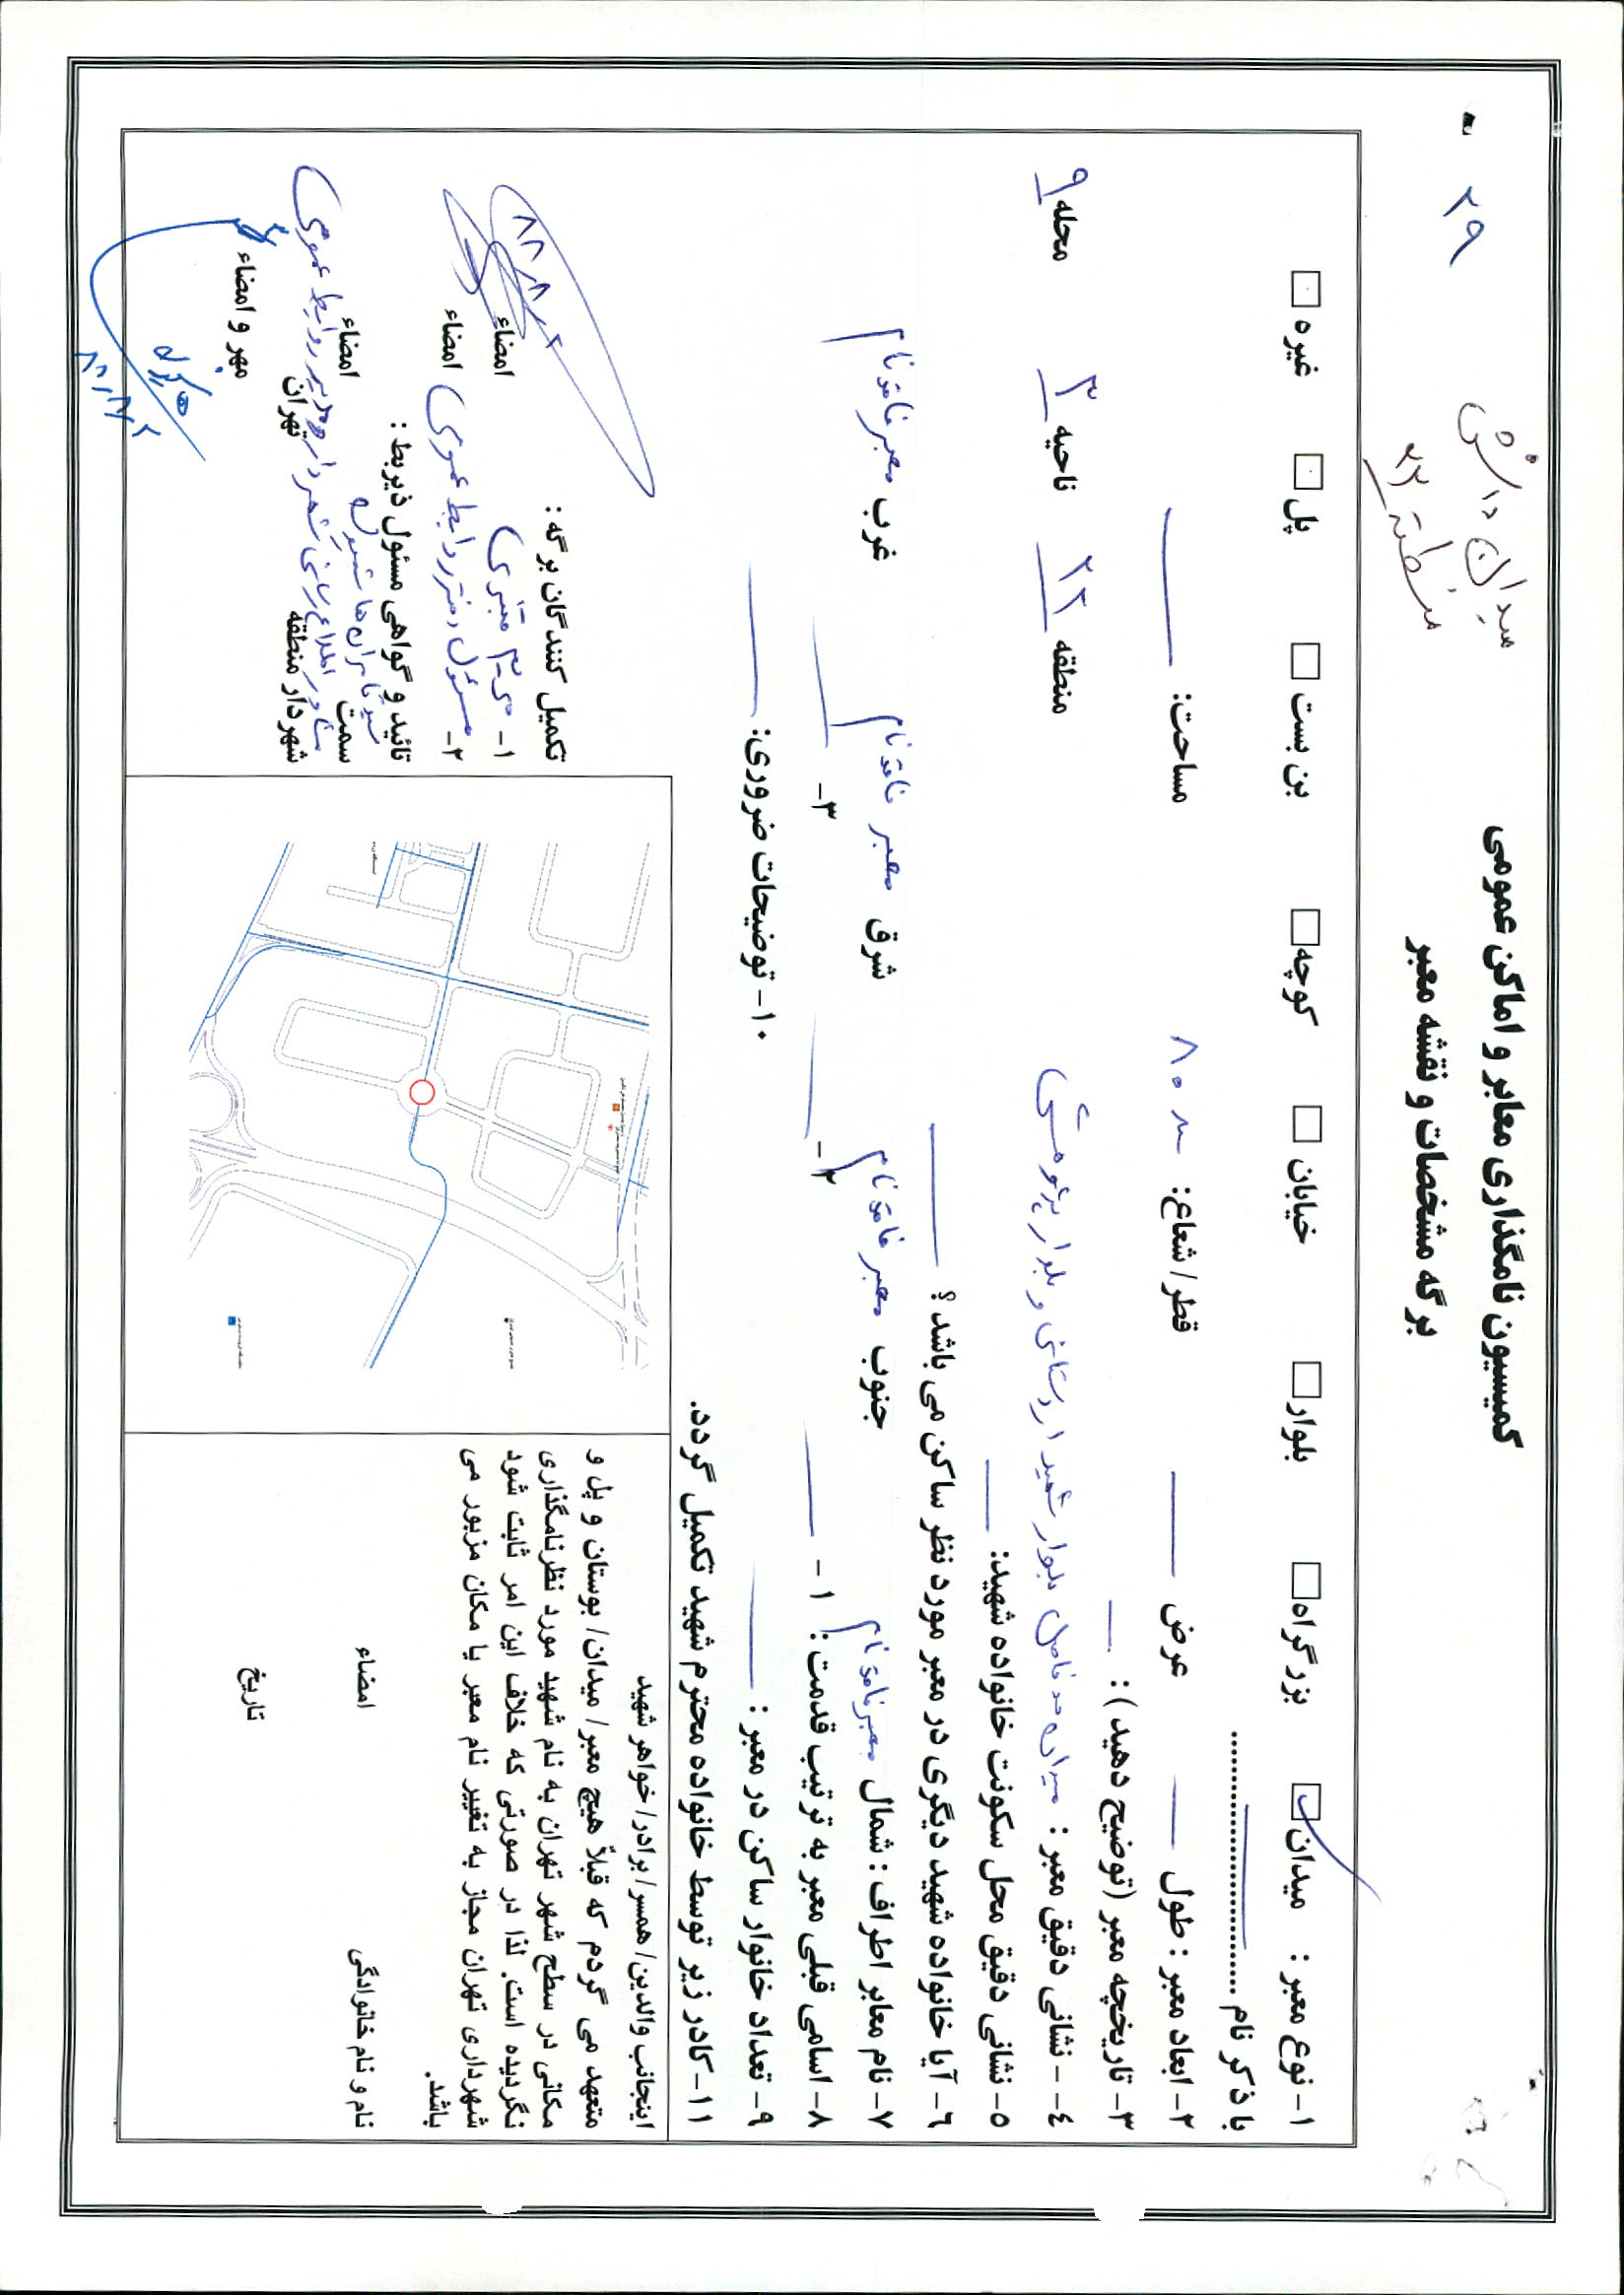 ۲۹
میدان دانش
منطقه ۲۲
کمیسیون نامگذاری معابر و اماکن عمومی
برگه مشخصات و نقشه معبر
۱- نوع معبر : میدان □ بزرگراه □ بلوار □ خیابان □ کوچه □ بن بست □ پل □ غیره □
با ذکر نام ..............................
۲- ابعاد معبر : طول عرض قطر/شعاع: ۸۰ م مساحت:
۳- تاریخچه معبر (توضیح دهید) :
۴- - نشانی دقیق معبر : میدان حد فاصل بلوار شهید اردستانی و بلوار منطقه ۲۲ ناحیه ۳ محله ۹
۵- نشانی دقیق محل سکونت خانواده شهید:
۶- آیا خانواده شهید دیگری در معبر مورد نظر ساکن می باشد ؟
۷- نام معابر اطراف : شمال معبر فاقد نام جنوب معبر فاقد نام شرق معبر فاقد نام غرب معبر فاقد نام
۸- اسامی قبلی معبر به ترتیب قدمت : ۱- ۲- ۳-
۹- تعداد خانوار ساکن در معبر : ۱۰- توضیحات ضروری:
۱۱-کادر زیر توسط خانواده محترم شهید تکمیل گردد.
اینجانب والدین/همسر/برادر/خواهر شهید
متعهد می گردم که قبلاً هیچ معبر/میدان/بوستان و پل و
مکانی در سطح شهر تهران به نام شهید مورد نظرنامگذاری
نگردیده است. لذا در صورتی که خلاف این امر ثابت شود
شهرداری تهران مجاز به تغییر نام معبر یا مکان مزبور می
باشد.
نام و نام خانوادگی امضاء
تاریخ
تکمیل کنندگان برگه :
۱- امضاء
۲- مسئول دفتر روابط عمومی امضاء
۸۸/۸/۲
تائید و گواهی مسئول ذیربط :
سمت امضاء
مدیر روابط عمومی
شهردار منطقه تهران مهر و امضاء